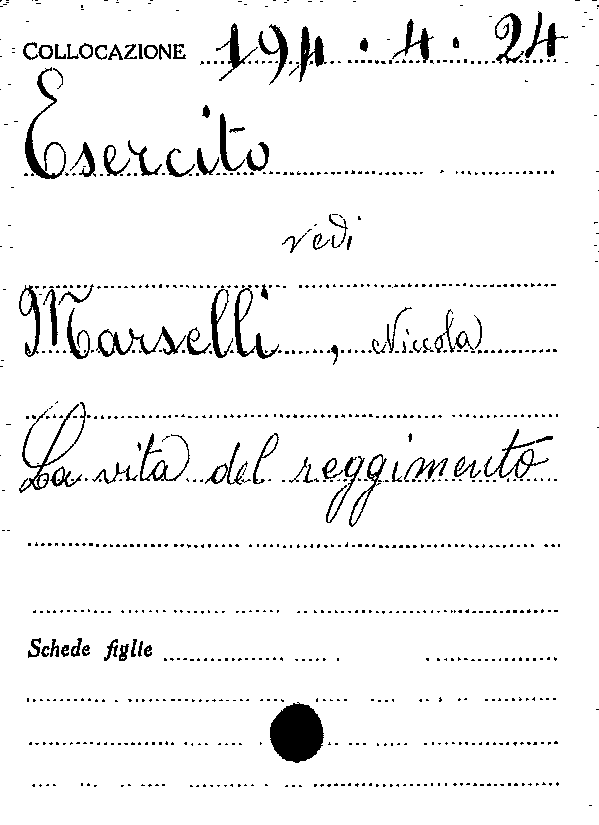 COLLOCAZIONE 191.4.24
Esercito
vedi
Marselli, Niccola
La vita del reggimento
Schede figlie